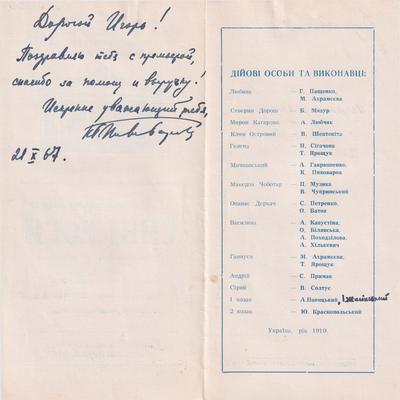 Дорогой Игорь!
Поздравляю тебя с премьерой,
спасибо за помощь и выручку!
Искренне уважающий тебя,
21 X 67.
ДІЙОВІ ОСОБИ ТА ВИКОНАВЦІ:
Любина — Г. Пащенко,
М. Ахрамєєва
Северин Дорош — Б. Мазур
— А. Любчик
Клим Островий — В. Шептекіта
Гелена — Н. Сігачова
Т. Ярощук
— А. Гаврюшенко,
К. Пивоваров
Максим Чоботар — П. Музика
В. Чупринський
Опанас Деркач — С. Петренко,
О. Батов
Василина — А. Капустіна,
О. Білинська,
А. Походзілова,
А. Хількевич
Ганнуся — М. Ахрамєєва,
Т. Ярощук
Андрій — С. Примак
Сірий — В. Солтус
1 козак — А. Пшоцький,
2 козак — Ю. Краснопольський
Україна, рік 1919.